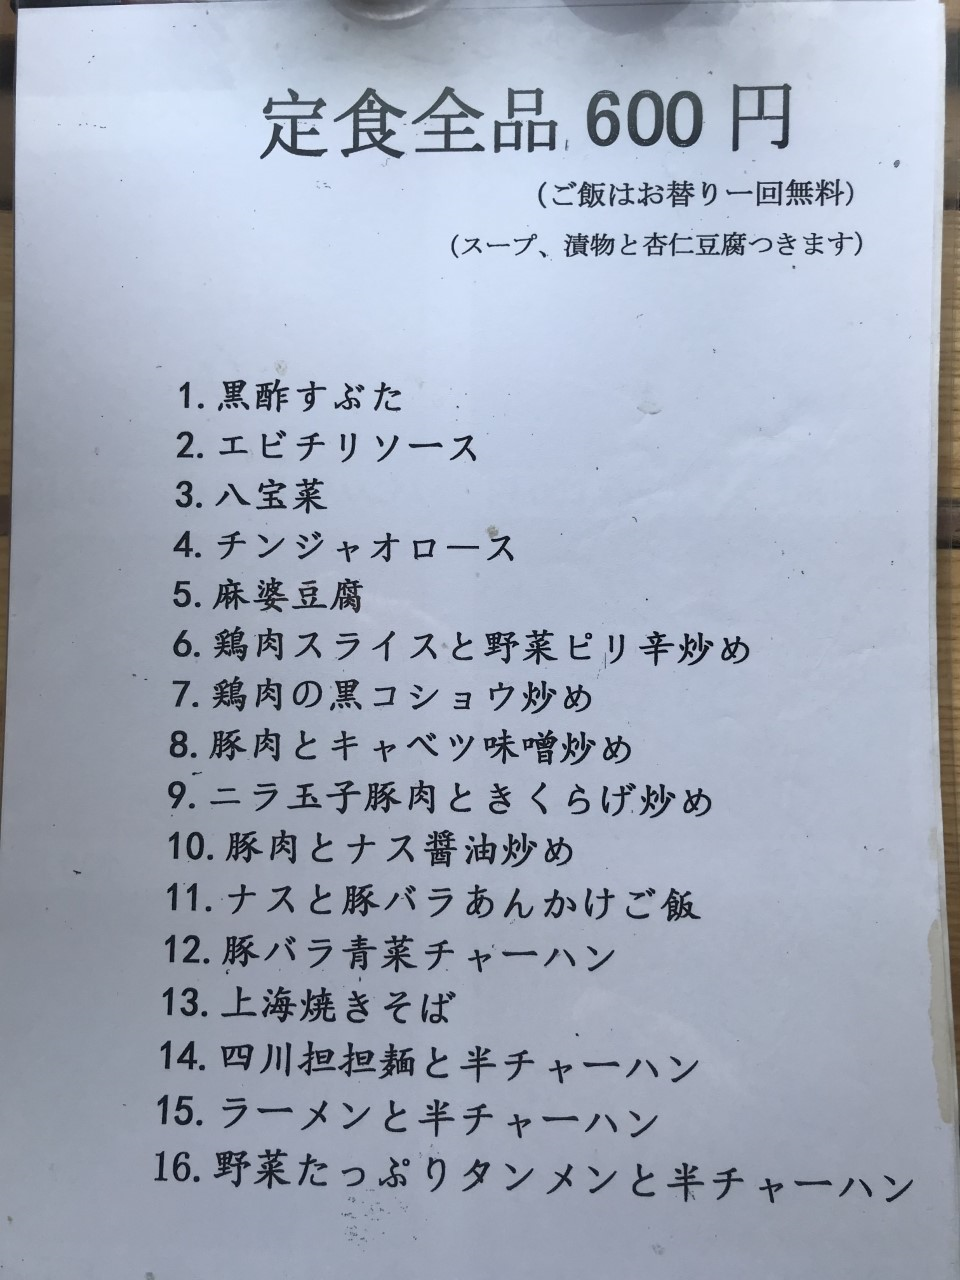 定食全品 600 円
(ご飯はお替り一回無料)
(スープ、漬物と杏仁豆腐つきます)
1. 黒酢すぶた
2. エビチリソース
3. 八宝菜
4. チンジャオロース
5. 麻婆豆腐
6. 鶏肉スライスと野菜ピリ辛炒め
7. 鶏肉の黒コショウ炒め
8. 豚肉とキャベツ味噌炒め
9. ニラ玉子豚肉ときくらげ炒め
10. 豚肉とナス醤油炒め
11. ナスと豚バラあんかけご飯
12. 豚バラ青菜チャーハン
13. 上海焼きそば
14. 四川担担麺と半チャーハン
15. ラーメンと半チャーハン
16. 野菜たっぷりタンメンと半チャーハン